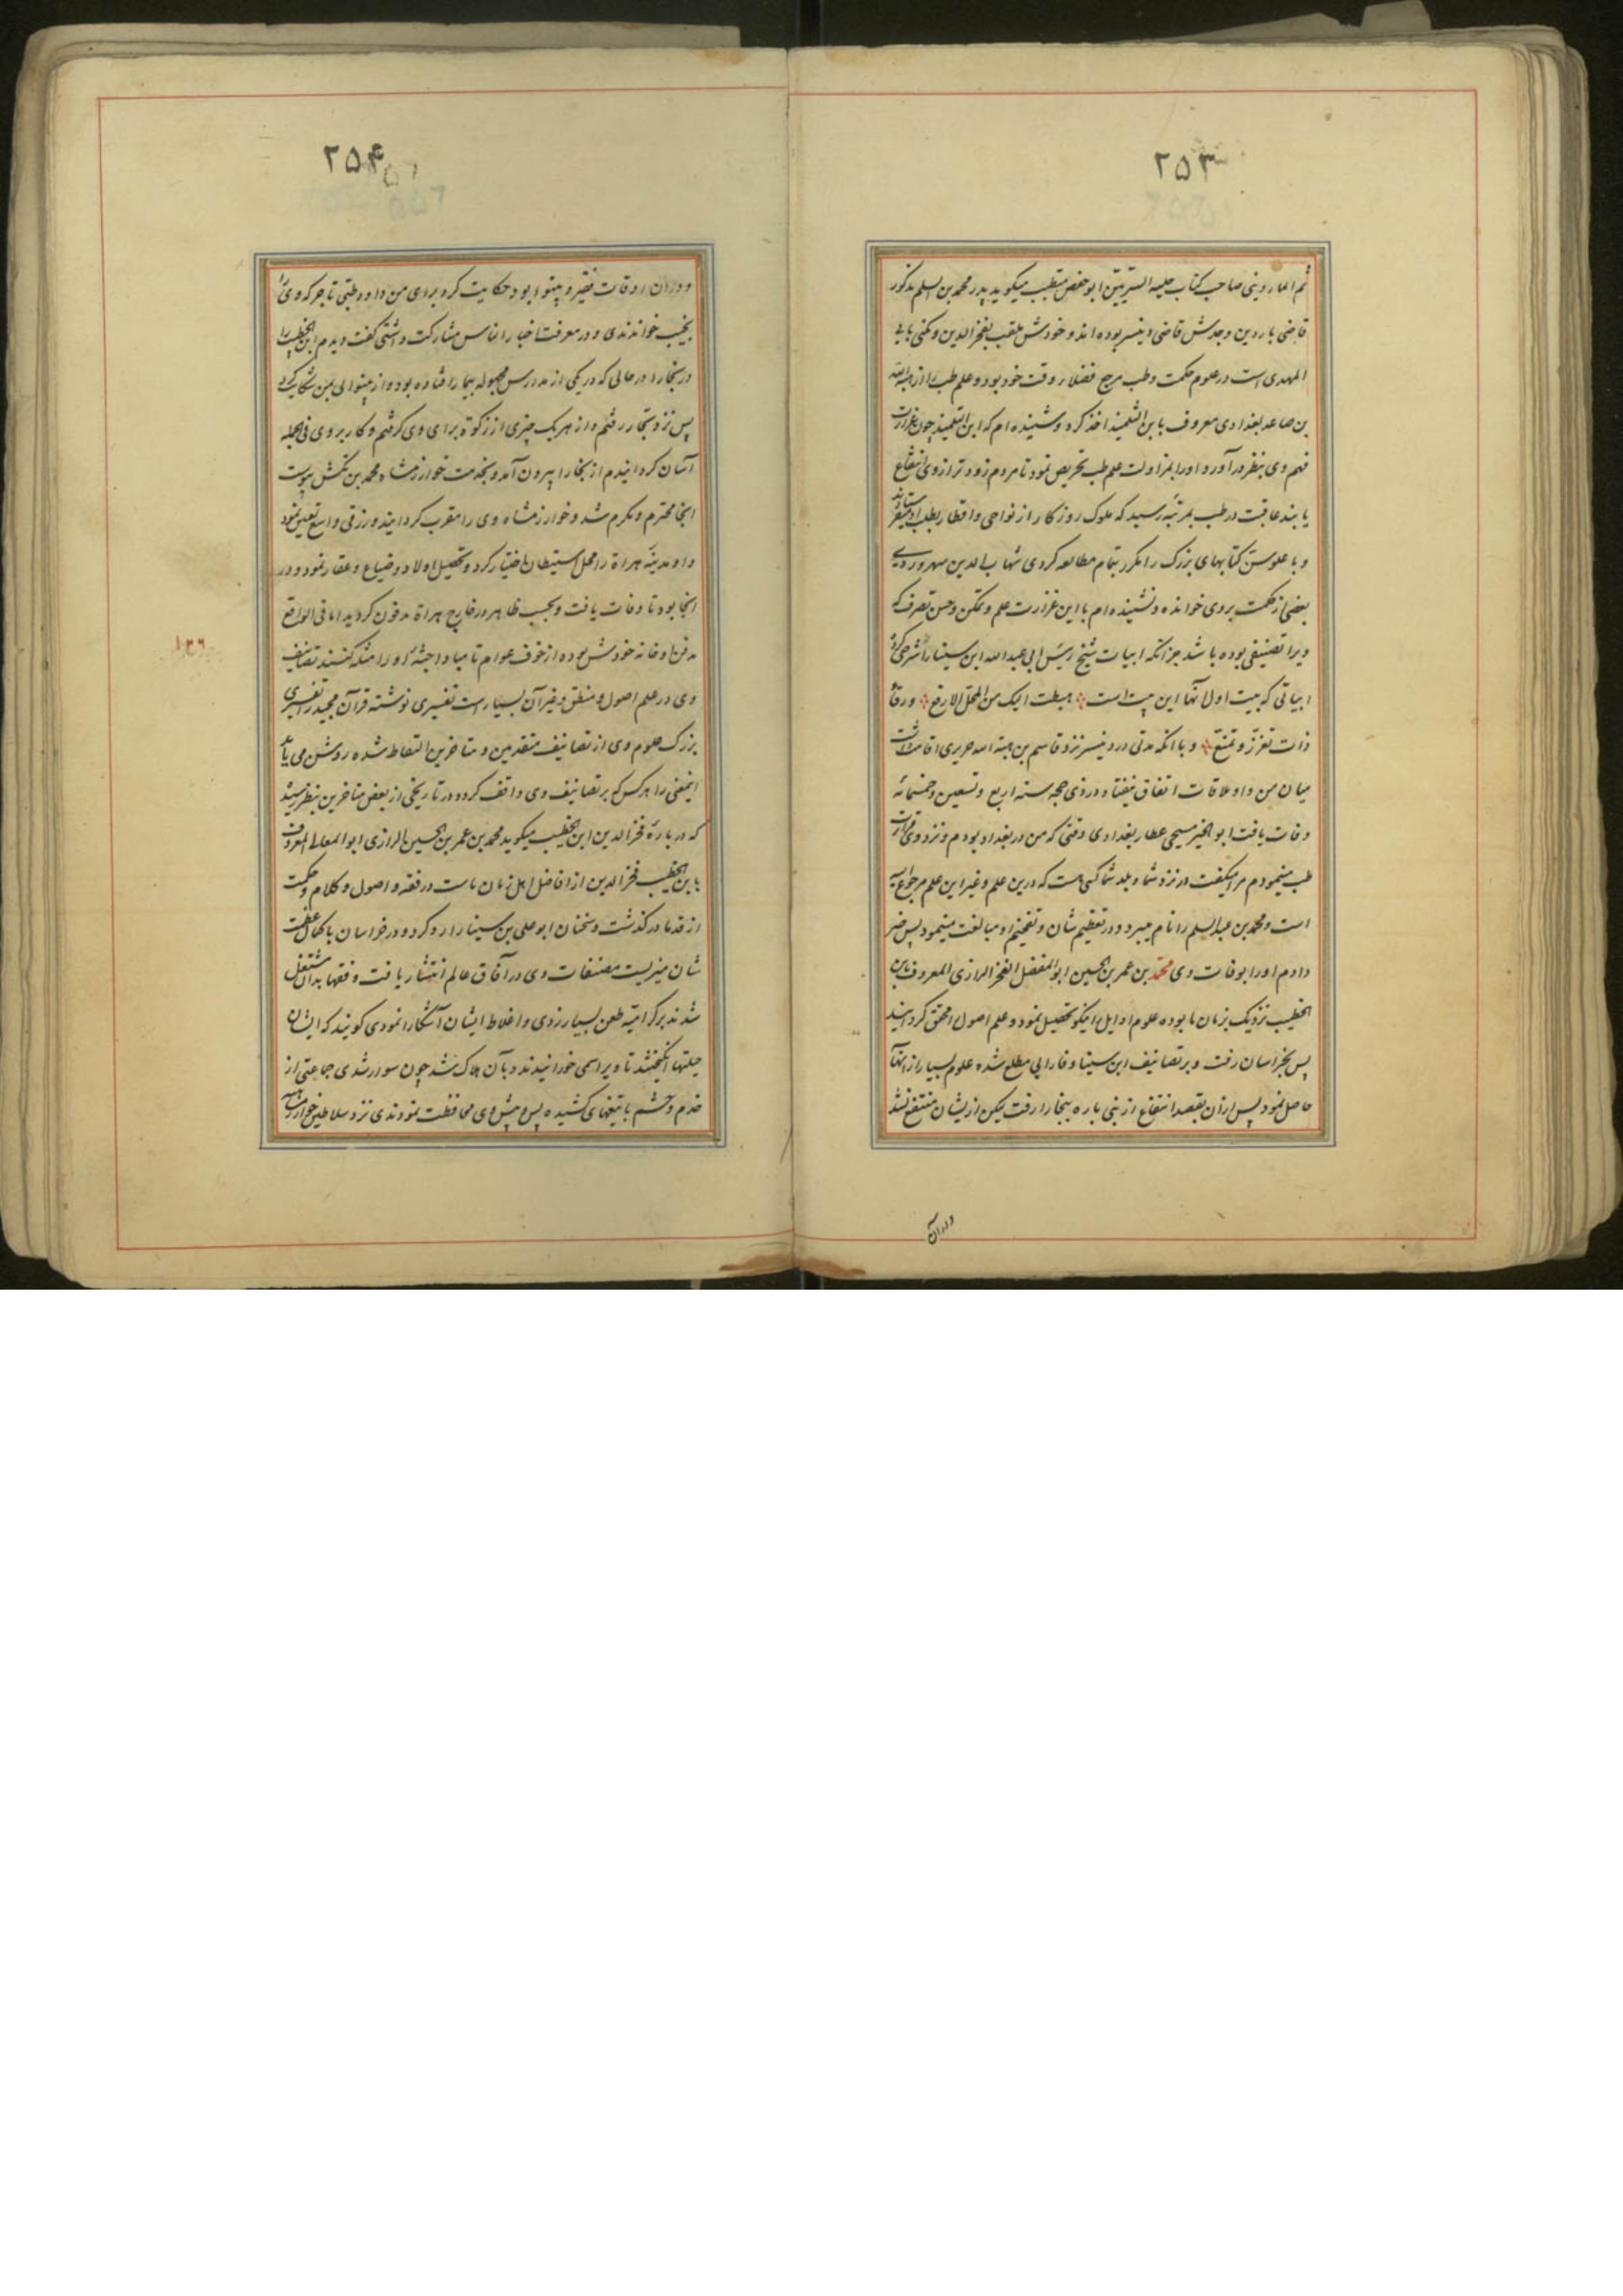 ۲۵۳
ثم الماردینی صاحب کتاب حلیه السریین ابو حفص متطبب میکوید پدر محمد بن السلم مذکور
قاضی ماردین وجدش قاضی دنیسر بوده اند و خودش ملقب بفخر الدین و مکنی بابی
المهدی است در علوم حکمت وطب مرجع فضلاء وقت خود بود و علم طب را از هبة الله
بن صاعد بغدادی معروف بابن التلمیذ اخذ کرد وشنیده ام که ابن التلمیذ چون غزارت
فهم وی بنظر در آورد او را بمزاولت علم طب تحریص نمود تا مردم زودتر از وی انتفاع
یابند عاقبت در طب بمرتبه رسید که ملوک روزکار از نواحی واقطار بطلب او میفرستادند
وبا علو سن کتابهای بزرک را مکرر بتمام مطالعه کردی شهاب الدین سهروردی
بعضی از حکمت بروی خوانده ونشنیده ام با این غزارت علم و تمکن وحسن تصرف که
ویرا تصنیفی بوده باشد جز آنکه ابیات شیخ رئیس ابی عبد الله ابن سینا را شرحی کرده
ابیاتی که بیت اول آنها این بیت است هبطت الیک من المحل الارفع ورقاء
ذات تعزز و تمنع وبا آنکه مدتی در دنیسر نزد قاسم بن هبة الله حریری اقامت داشت
میان من واو ملاقات اتفاق نیفتاد و در ذی حجه سنه اربع وتسعین وخمسمائه
وفات یافت ابو الخیر مسیحی عطار بغدادی وقتی که من در بغداد بودم ونزد وی قرائت
طب مینمودم مرا میکفت در نزد شما وبلد شما کسی هست که درین علم وغیر این علم مرجوع الیه
است ومحمد بن عبد السلم را نام میبرد و در تعظیم شان وتفخیم او مبالغت مینمود پس خبر
دادم او را بوفات وی محمد بن عمر بن الحسین ابو الفضل الفخر الرازی المعروف بابن
الخطیب نزدیک بزمان ما بوده علوم اوایل را نیکو تحصیل نمود و علم اصول را محقق کردانید
پس بخراسان رفت و بر تصانیف ابن سینا وفارابی مطلع شده علوم بسیار از آنها
حاصل نمود پس از آن بقصد انتفاع از بنی باره ببخارا رفت لیکن از یشان منتفع نشد
ودران
۲۵۴
ودران اوقات فقیر و بینوا بود حکایت کرد برای من داود طبی تاجر که ویرا
بنجیب خواندندی ودر معرفت اخبار الناس مشارکت داشتی کفت دیدم ابن الخطیب را
در بخارا در حالی که در یکی از مدارس مجهوله بیمار افتاده بود واز بینوائی بمن شکایت کرد
پس نزد تجار رفتم واز هر یک چیزی از زکوة برای وی کرفتم وکار بروی فی الجمله
آسان کردانیدم از بخارا بیرون آمد و بخدمت خوارزمشاه محمد بن تکش پیوست
آنجا محترم ومکرم شد وخوارزمشاه وی را مقرب کردانید و رزقی واسع تعیین نمود
واو مدینه هراة را محل استیطان اختیار کرد و تحصیل اولاد وضیاع وعقار نمود ودر
آنجا بود تا وفات یافت وبحسب ظاهر در خارج هراة مدفون کردید اما فی الواقع
۱۳۶
مدفن او خانه خودش بوده از خوف عوام تا مبادا جثه او را مثله کنند تصانیف
وی در علم اصول ومنطق وغیر آن بسیار است تفسیری نوشته قرآن مجید را تفسیری
بزرک علوم وی از تصانیف متقدمین ومتاخرین التقاط شده روشن می یابد
اینمعنی را هر کس که بر تصانیف وی واقف کردد و در تاریخی از بعض متاخرین بنظر رسید
که در باره فخر الدین ابن الخطیب میکوید محمد بن عمر بن الحسین الرازی ابو المعالی المعروف
بابن الخطیب فخر الدین از افاضل اهل زمان ماست در فقه واصول وکلام وحکمت
از قدما در کذشت وسخنان ابو علی بن سینا را رد کرد ودر خراسان با کمال عظمت
شان میزیست مصنفات وی در آفاق عالم انتشار یافت وفقها بدان مشتغل
شدند بر کرامیه طعن بسیار زدی واغلاط ایشان آشکارا نمودی کویند که ایشان
حیلتها انکیختند تا ویرا سمی خورانیدند وبآن هلاک شد چون سوار شدی جماعتی از
خدم وحشم با تیغهای کشیده پس وپیش وی محافظت نمودندی نزد سلاطین خوارزمشاهیه